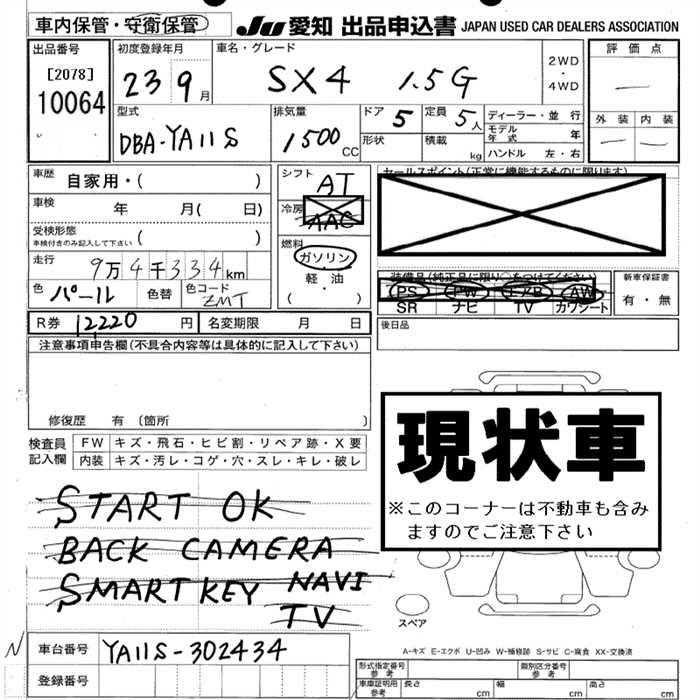 車内保管・守衛保管
JU 愛知 出品申込書 JAPAN USED CAR DEALERS ASSOCIATION
出品番号
[2078]
10064
初度登録年月
23 9月
車名・グレード
SX4 1.5G
2WD
・
4WD
評価点
—
外装 内装
— —
型式
DBA-YA11S
排気量
1500 CC
ドア 5
定員 5人
形状
積載 kg
ディーラー・並行
モデル年式 年
ハンドル 左・右
車歴 自家用・( )
車検 年 月( 日)
受検形態
車検付きのみ記入して下さい ( )
走行 9万4千334km
色 パール 色替 色コード ZMT
シフト AT
冷房 AAC
燃料
ガソリン
・
軽・油
( )
セールスポイント(正常に機能するものに限ります)
装備品(純正品に限り○をつけてください)
PS PW エアB AW
SR ナビ TV カワシート
新車保証書
有・無
R券 12220円 名変期限 月 日
後日品
注意事項申告欄(不具合内容等は具体的に記入して下さい)
修復歴 有(箇所 )
検査員記入欄
FW キズ・飛石・ヒビ割・リペア跡・X要
内装 キズ・汚レ・コゲ・穴・スレ・キレ・破レ
START OK
BACK CAMERA
SMARTKEY NAVI
TV
現状車
※このコーナーは不動車も含み
ますのでご注意下さい
スペア
A-キズ E-エクボ U-凹み W-補修跡 S-サビ C-腐食 XX-交換済
N
車台番号 YA11S-302434
登録番号
型式指定番号
参考
類別区分番号
参考
車車証明用
参考
長さ cm 幅 cm 高さ cm